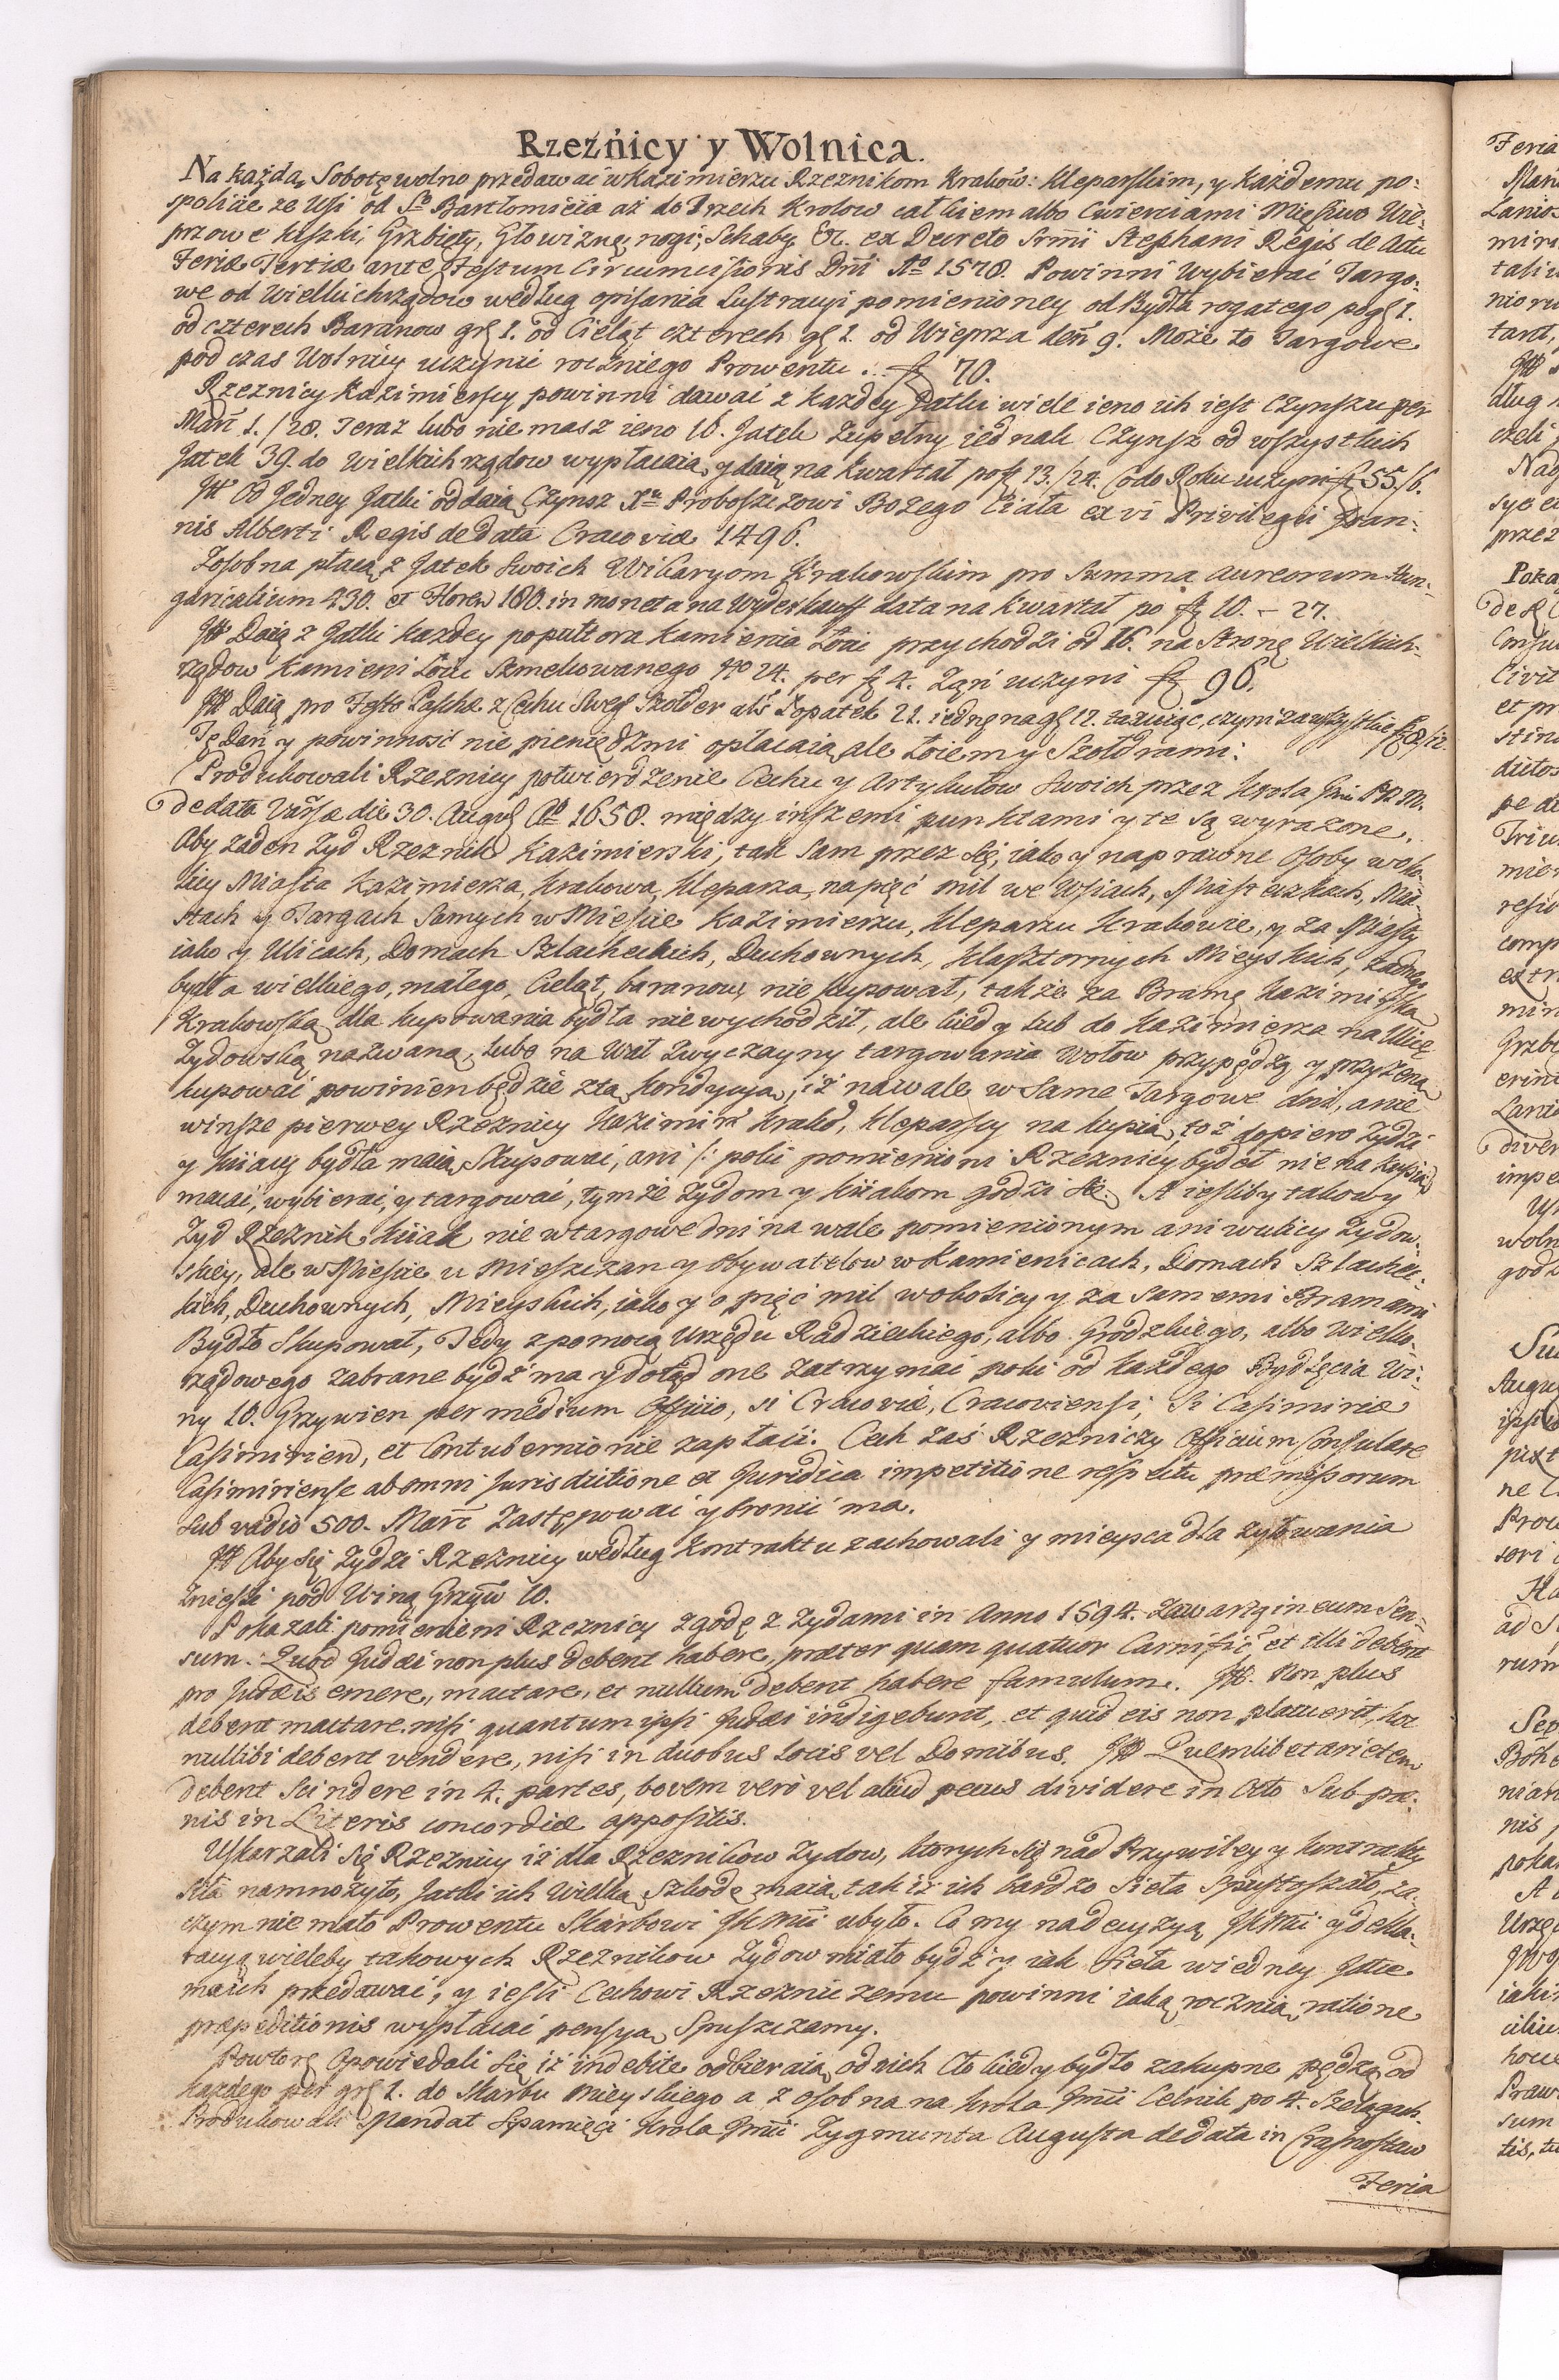 Rzeźnicy y Wolnica.
Na każdą Sobotę wolno przedawać w Kazimierzu Rzeznikom Krakow: Kleparskim, y każdemu po:
spolicie ze Wsi od Sº Bartłomieia aż do Trzech Krolow całkiem albo Cwierciami Mięsiwo Wie:
przowe kiszki, Grzbiety, Głowiznę, nogi, Schaby, &c. ex Decreto Srmi Stephani Regis de Actu
Feriæ Tertiæ ante Festum Circumcisionis Dni Aº 1578. Powinni Wybierać Targo:
we od Wielkichrządow według opisania Lustracyi pomienioney od Bydła rogatego po gł 1.
od czterech Baranow grł 1. od Cieląt czterech gł 1. od Wieprza den 9. Może to Targowe
pod czas Wolnicy uczynić roczniego Prowentu . . fl 70.
Rzeznicy Kazimierscy powinni dawać z każdey Jatki wiele ieno ich iest Czynszu per
Marc 1./20. Teraz lubo nie masz ieno 16. Jatek Zupełny iednak Czynsz od wszystkich
Jatek 39. do Wielkich rządow wypłacaią, y daią na Kwartał po fl 13./24. Co do Roku uczyni fl 55/6.
Itt Od Jedney Jatki oddaią Czynsz Xu Proboszczowi Bożego Ciała ex vi Privilegii Joan:
nis Alberti Regis de data Cracoviæ 1496.
Zosobna płacą z Jatek Swoich Wikaryom Krakowskim pro Summa aureorum Hun:
garicalium 230. et Floren 180. in moneta na Wyderkauff data na Kwartał po fl 10. – 27.
Itt Daią z Jatki każdey po pułtora Kamienia Łoiu przychodzi od 16. na Stronę Wielkich:
rządow Kamieni Łoiu Szmelcowanego Nº 24. per fl 4. Zań uczyni fl 96.
Itt Daią pro Festo Paschæ z Cechu Sweg Szołder als Łopatek 21. iednę na gł 12. rachuiąc, czyni za wszystkie fl 8/12.
Tę Dań y powinność nie pieniędzmi opłacaią, ale Łoiem y Szołdrami:
Produkowali Rzeznicy potwierdzenie Cechu y Artykułow Swoich przez Krola Jmci P. N. M.
de data Varsæ die 30. Augus Aº 1650. między inszemi punktami y te są wyrażone.
Aby żaden Zyd Rzeznik Kazimierski, tak Sam przez się, iako y naprawne Osoby w oko
licy Miasta Kazimierza, Krakowa, Kleparza, na pięć mil we Wsiach, Miasteczkach, Mia:
stach y Targach Samych w Mieście Kazimierzu, Kleparzu Krakowie, y za Miasty
iako y Ulicach, Domach Szlacheckich, Duchownych, Klasztornych Mieyskich, żadnego
bydła wielkiego, małego, Cieląt, baranow, nie kupował, także za Bramę Kazimirską
Krakowską dla kupowania bydła nie wychodził, ale kiedy lub do Kazimierza na Ulicę
Zydowską nazwaną, lubo na Wał Zwyczayny targowania Wołow przypędzą y przyżeną
kupować powinien będzie z tą kondycyą, iż na wale w Same Targowe dni, a nie
winsze pierwey Rzeznicy Kazimir Krako, Kleparscy na kupią, toż dopiero Zydzi
y kiiacy bydła maią Skupować, ani /: poki pomienioni Rzeznicy bydeł nie na kupią
macać, wybierać, y targować, tymże Zydom y kiiakom godzi się. A iesliby takowy
Zyd Rzeznik, kiiak nie w targowe dni na wale pomienionym ani w ulicy Zydow:
skiey, ale w Mieście u Mieszczan y Obywatelow w Kamienicach, Domach Szlachec:
kich, Duchownych, Mieyskich, iako y o pięć mil w okolicy y za Samemi Bramami
Bydło Skupował, Tedy z pomocą Urzędu Radzieckiego, albo Grodzkiego, albo Wielko:
rządowego zabrane bydź ma y dotąd one zatrzymać poki od każdego Bydlęcia Wi:
ny 10. Grzywien per medium Officio, si Cracoviæ, Cracoviensi, Si Casimiriæ
Casimirien, et Contubernio nie zapłaci. Cech zaś Rzezniczy Officium Consulare
Casimiriense ab omni Jurisdictione et Juridica impetitione respectu præmissorum
sub vadio 500. Marc Zastępować y bronić ma.
Itt Aby się Zydzi Rzeznicy według Kontraktu zachowali y mieysca dla zyłowania
Znieśli pod Winą Grzyw 10.
Pokazali pomienieni Rzeznicy Zgodę z Zydami in Anno 1594. Zawartą in eum Sen:
sum. Quod Judæi non plus debent habere, præter quam quatuor Carnific et illi debent
pro Judæis emere, mactare, et nullum debent habere famulum. Itt. Non plus
debent mactare nisi quantum ipsi Judæi indigebunt, et quid eis non placuerit, hoc
nullibi debent vendere, nisi in duobus locis vel Domibus. Itt Quemlibet arietem
debent scindere in 4. partes, bovem verò vel aliud pecus dividere in Octo Sub pæ:
nis in Literis concordiæ appositis.
Uskarzali się Rzeznicy iż dla Rzeznikow Zydow, ktorych się nad Przywiley y kontrakty
siła namnożyło, Jatki ich Wielką Szkodę maią, tak iż ich bardzo Siła Spustoszało, za:
czym nie mało Prowentu Skarbowi JKMci ubyło. Co my na decyzyą JKMci y dekla:
racyą wieleby takowych Rzeznikow Zydow miało bydź y iak Siła w iedney Jatce
maich przedawać, y iesli Cechowi Rzezniczemu powinni iaką roczną ratione
præpeditionis wypłacać pensyą, Spuszczamy.
Powtorę Opowiedali się iż indebite odbieraią od nich Cło kiedy bydło zakupne pędzą, od
każdego per grł 1. do Skarbu Mieyskiego a z osobna na Krola Jmci Celnik po 4. Szelągach.
Produkowali Mandat S. pamięci Krola Jmci Zygmunta Augusta de data in Crasnostaw
Feria